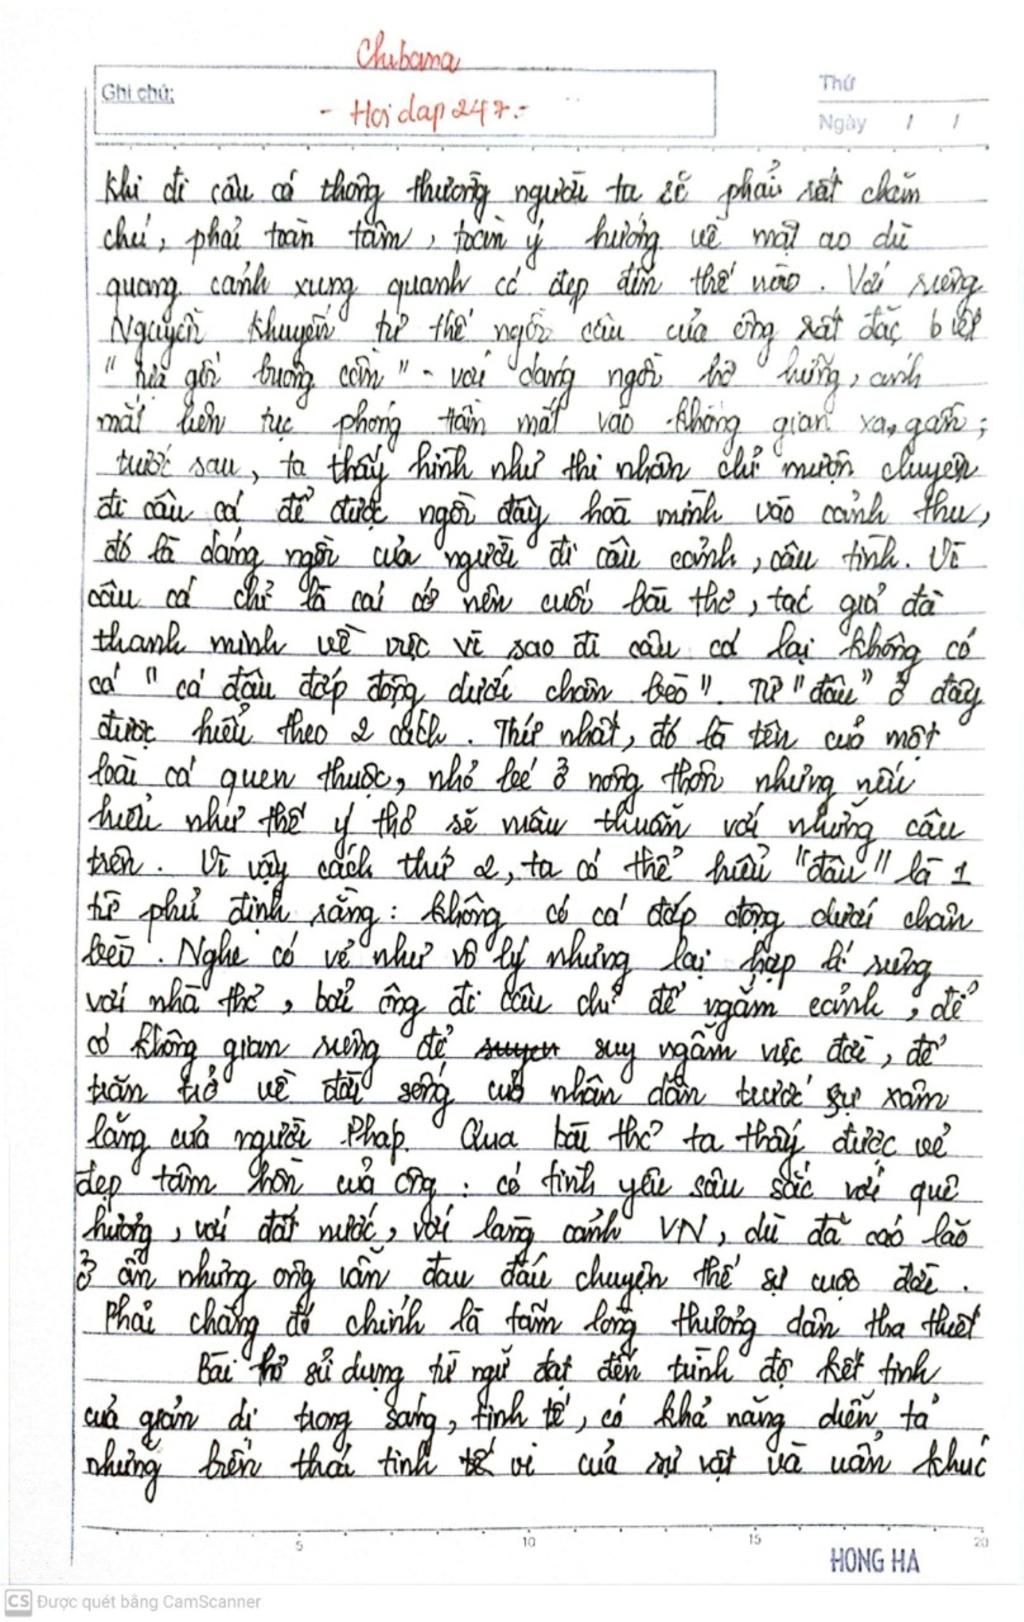 Chibana
Ghi chú:
- Hoi dap 247 -
Thứ
Ngày / /
Khi đi câu cá thông thường người ta sẽ phải rất chăm
chú, phải toàn tâm, toàn ý hướng về mặt ao dù
quang cảnh xung quanh có đẹp đến thế nào. Với riêng
Nguyễn Khuyến tư thế ngồi câu của ông rất đặc biệt
" tựa gối buông cần" - với dáng ngồi hờ hững, ánh
mắt liên tục phóng tầm mắt vào không gian xa, gần;
trước sau, ta thấy hình như thi nhân chỉ mượn chuyện
đi câu cá để được ngồi đây hoà mình vào cảnh thu,
đó là dáng ngồi của người đi câu cảnh, câu tình. Vì
câu cá chỉ là cái cớ nên cuối bài thơ, tác giả đã
thanh minh về việc vì sao đi câu cá lại không có
cá " cá đâu đớp động dưới chân bèo". Từ "đâu" ở đây
được hiểu theo 2 cách. Thứ nhất, đó là tên của một
loài cá quen thuộc, nhỏ bé ở nông thôn nhưng nếu
hiểu như thế ý thơ sẽ mâu thuẫn với những câu
trên. Vì vậy cách thứ 2, ta có thể hiểu "đâu" là 1
từ phủ định rằng: không có cá đớp động dưới chân
bèo. Nghe có vẻ như vô lý nhưng lại hợp lí riêng
với nhà thơ, bởi ông đi câu chỉ để ngắm cảnh, để
có không gian riêng để suy ngẫm việc đời, để
trăn trở về đời sống của nhân dân trước sự xâm
lăng của người Pháp. Qua bài thơ ta thấy được vẻ
đẹp tâm hồn của ông: có tình yêu sâu sắc với quê
hương, với đất nước, với làng cảnh VN, dù đã cáo lão
ở ẩn nhưng ông vẫn đau đáu chuyện thế sự cuộc đời.
Phải chăng đó chính là tấm lòng thương dân tha thiết
Bài thơ sử dụng từ ngữ đạt đến trình độ kết tinh
của giản dị trong sáng, tinh tế, có khả năng diễn tả
những biến thái tinh tế vi của sự vật và uẩn khúc
5 10 15 20
HONG HA
CS Được quét bằng CamScanner